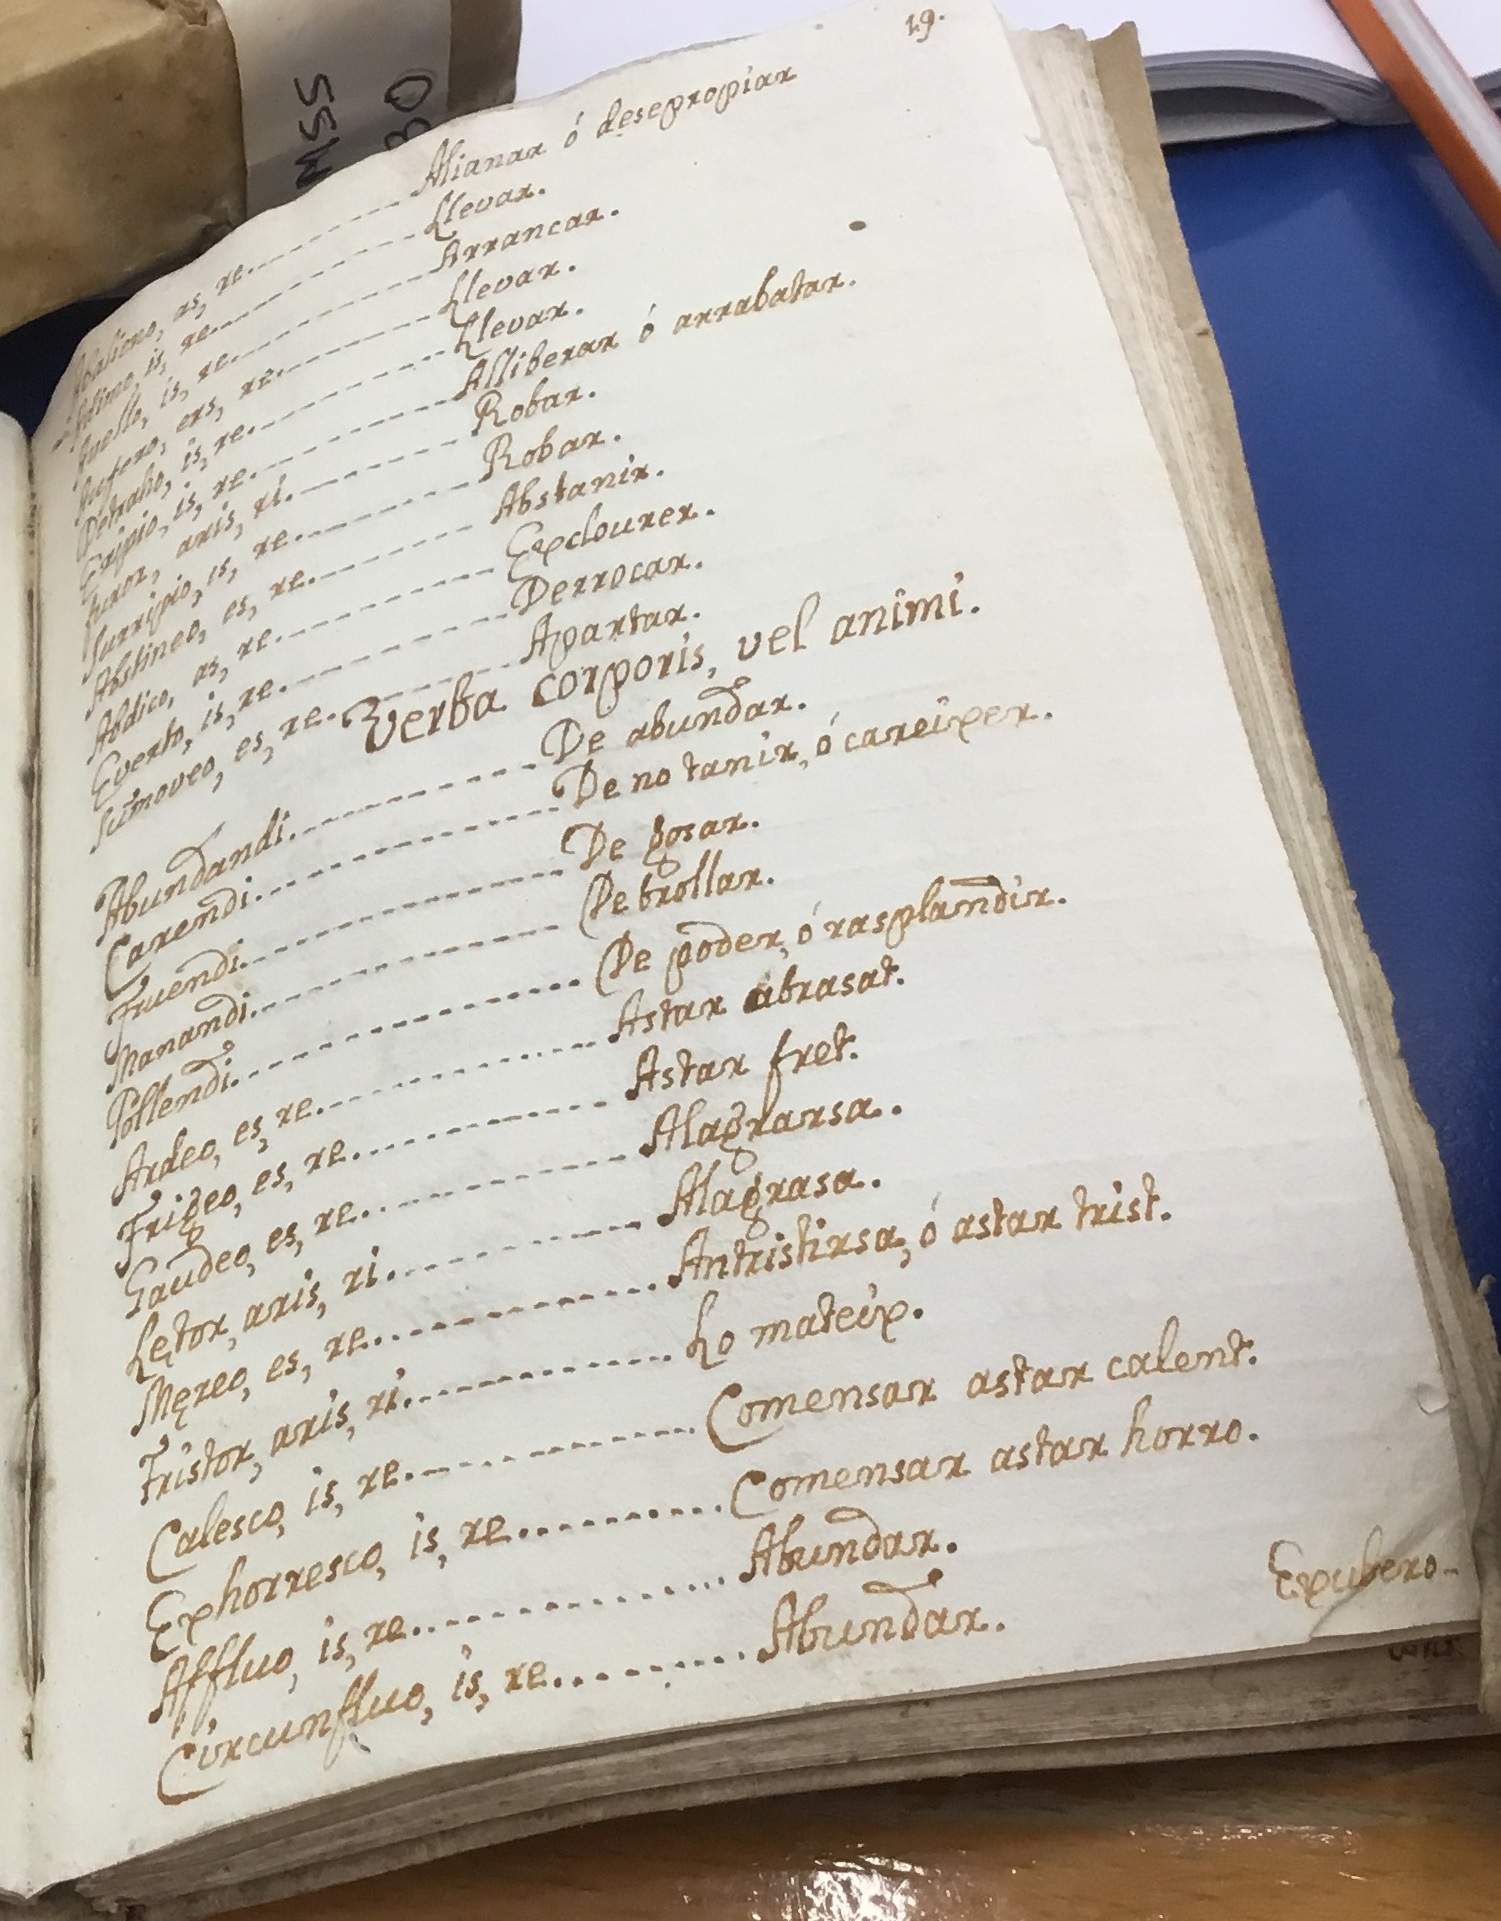 19.
Abalieno, as, re. Alianar ó desepropiar
Adimo, is, re. Llevar.
Avello, is, re. Arrancar.
Aufero, ers, re. Llevar.
Detraho, is, re. Llevar.
Eripio, is, re. Alliberar ó arrabatar.
Furor, aris, ri. Robar.
Surripio, is, re. Robar.
Abstineo, es, re. Abstanir.
Abdico, as, re. Exclourer.
Everto, is, re. Derrocar.
Sumoveo, es, re. Apartar.
Verba corporis, vel animi.
Abundandi. De abundar.
Carendi. De no tanir, ó careixer.
Fruendi. De gosar.
Manandi. De brollar.
Pollendi. De poder, ó rasplandir.
Ardeo, es, re. Astar abrasat.
Frigeo, es, re. Astar fret.
Gaudeo, es, re. Alagrarsa.
Lętor, aris, ri. Alagrasa.
Męreo, es, re. Antristirsa, ó astar trist.
Tristor, aris, ri. Lo mateix.
Calesco, is, re. Comensar astar calent.
Exhorresco, is, re. Comensar astar horro.
Affluo, is, re. Abundar.
Circunfluo, is, re. Abundar.
Exubero
MSS